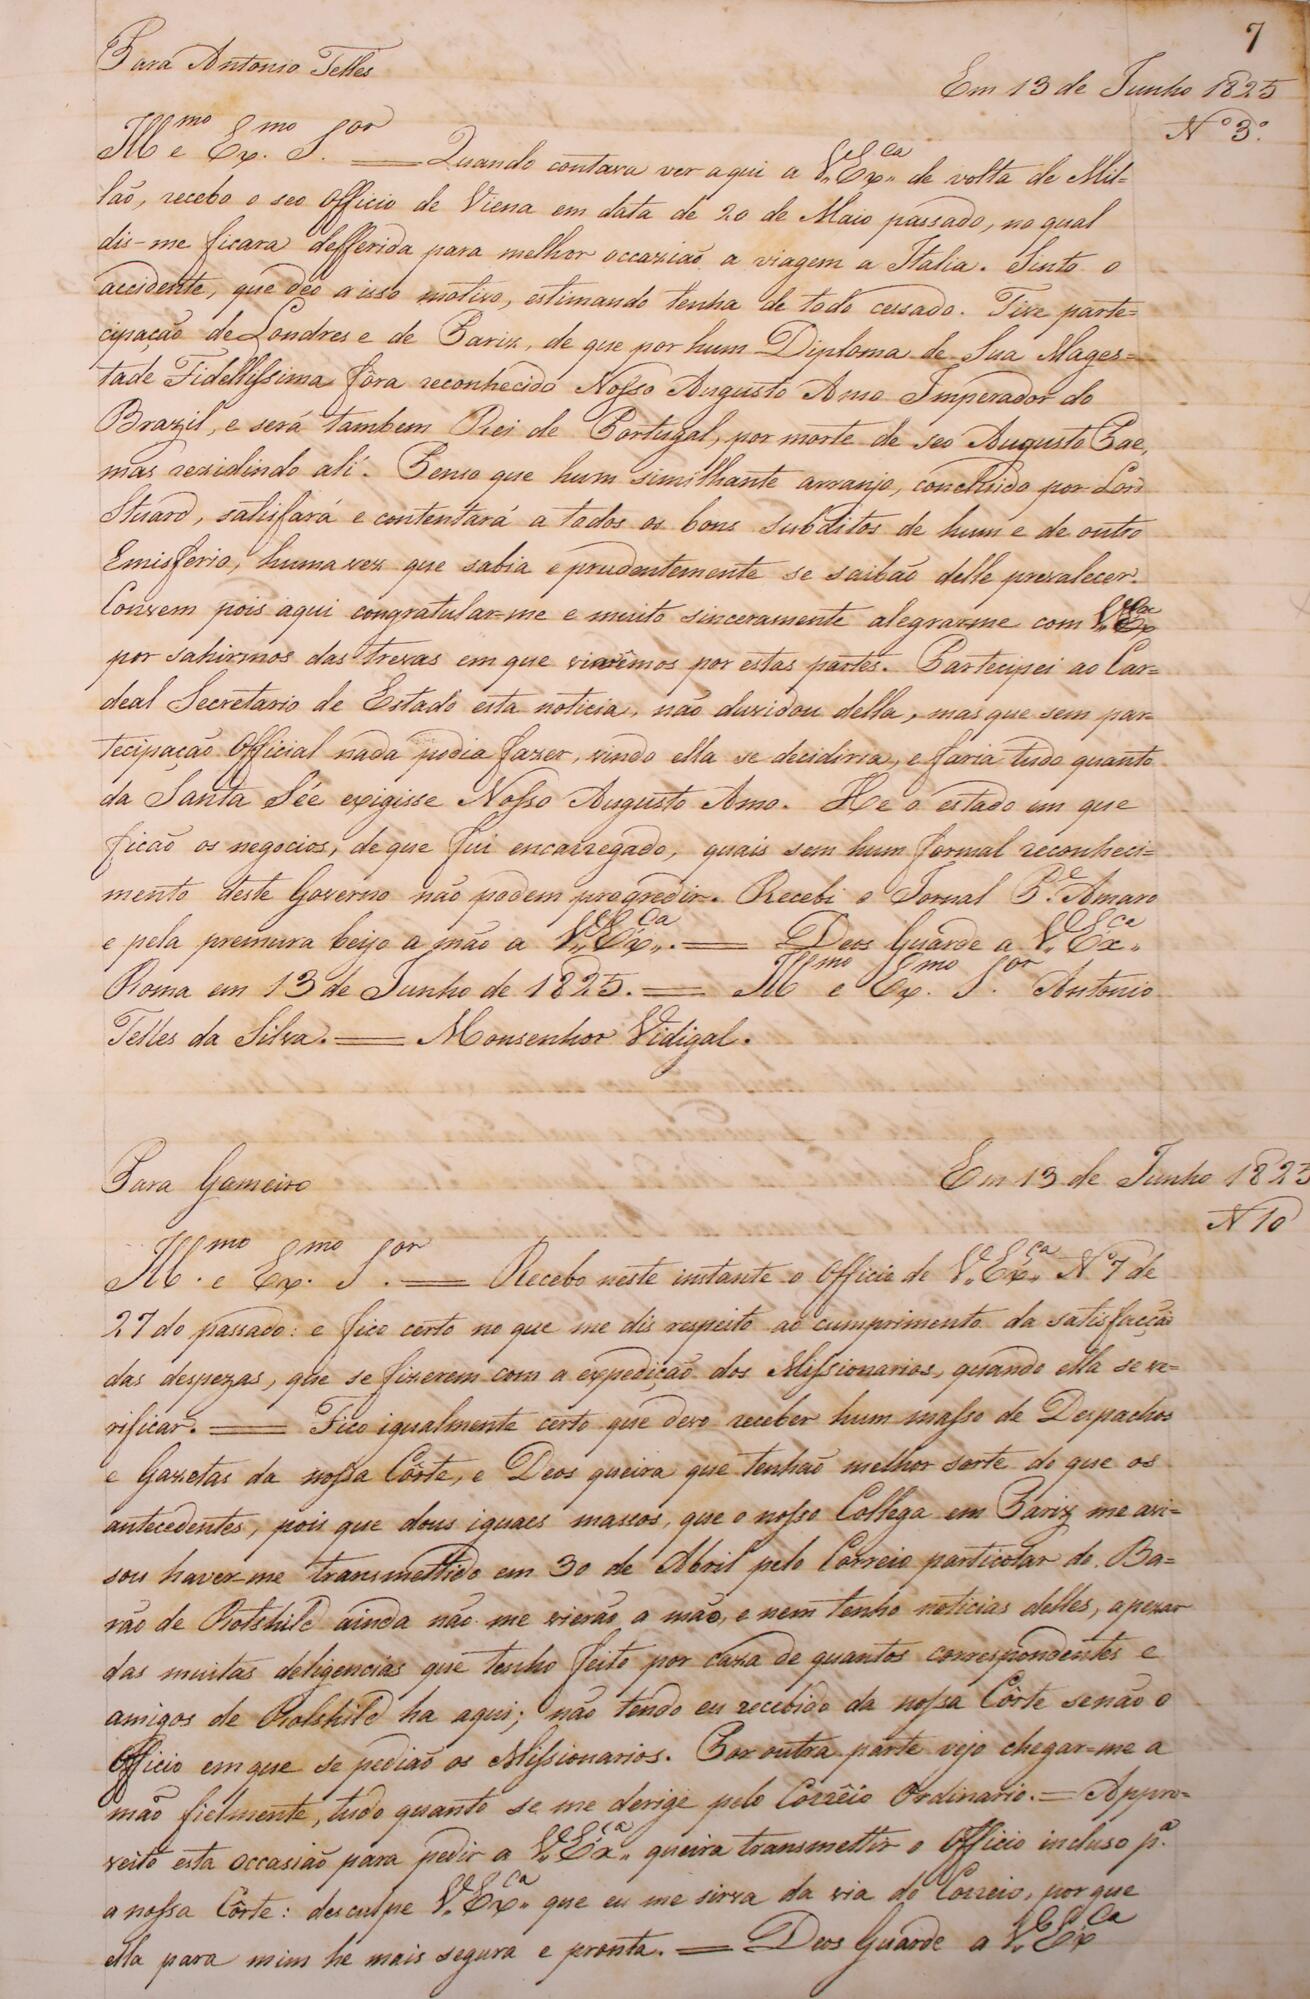 7
Para Antonio Telles
Em 13 de Junho 1825
Nº 3º
Illmo e Exmo Sor = Quando contava ver aqui a V. Exca de volta de Mil=
lão, recebo o seo Officio de Viena em data de 20 de Maio passado, no qual
dis-me ficara defferida para melhor occazião a viagem a Italia. Sinto o
accidente, que deo a isso motivo, estimando tenha de todo cessado. Tive parte=
cipação de Londres e de Pariz, de que por hum Diploma de Sua Mages=
tade Fidellissima fôra reconhecido Nosso Augusto Amo Imperador do
Brazil, e será tambem Rei de Portugal, por morte de seo Augusto Pae,
mas rezidindo ali. Penso que hum similhante arranjo, concluido por Lord
Stuard, satisfará e contentará a todos os bons subditos de hum e de outro
Emisferio, huma vez que sabia e prudentemente se saibão delle prevalecer.
Convem pois aqui congratular=me e muito sinceramente alegrarme com V. Exca
por sahirmos das trevas em que vivêmos por estas partes. Partecipei ao Car=
deal Secretario de Estado esta noticia, não duvidou della, mas que sem par=
tecipação Official nada podia fazer, vindo ella se decidiria, e faria tudo quanto
da Santa Sée exigisse Nosso Augusto Amo. He o estado em que
ficão os negocios, de que fui encarregado, quais sem hum formal reconheci=
mento deste Governo não podem progredir. Recebi o Jornal Pe. Amaro
e pela premura beijo a mão a V. Exca. = Deos Guarde a V. Exca.
Roma em 13 de Junho de 1825. = Illmo e Exmo Sor Antonio
Telles da Silva. = Monsenhor Vidigal.
Para Gameiro
Em 13 de Junho 1825
N 10
Illmo. e Exmo. Sor. = Recebo neste instante o Officio de V. Exca. Nº 7 de
27 do passado: e fico certo no que me dis respeito ao cumprimento da satisfacção
das despezas, que se fizerem com a expedição dos Missionarios, quando ella se ve=
rificar. = Fico igualmente certo que devo receber hum masso de Despachos
e Gazetas da nossa Côrte, e Deos queira que tenhão melhor sorte do que os
antecedentes, pois que dous iguaes massos, que o nosso Collega em Pariz me avi=
sou haver-me transmettido em 30 de Abril pelo Correio particolar do Ba=
rão de Rotshild ainda não me vierão a mão, e nem tenho noticias delles, apezar
das muitas deligencias que tenho feito por caza de quantos correspondentes e
amigos de Rotshild ha aqui; não tendo eu recebido da nossa Côrte senão o
Officio em que se pedião os Missionarios. Por outra parte vejo chegar=me a
mão fielmente, tudo quanto se me derige pelo Corrêio Ordinario. = Appro=
veito esta occasião para pedir a V. Exca. queira transmettir o Officio incluso pª.
a nossa Côrte: desculpe V. Exca. que eu me sirva da via do Correio, por que
ella para mim he mais segura e pronta. = Deos Guarde a V. Exca